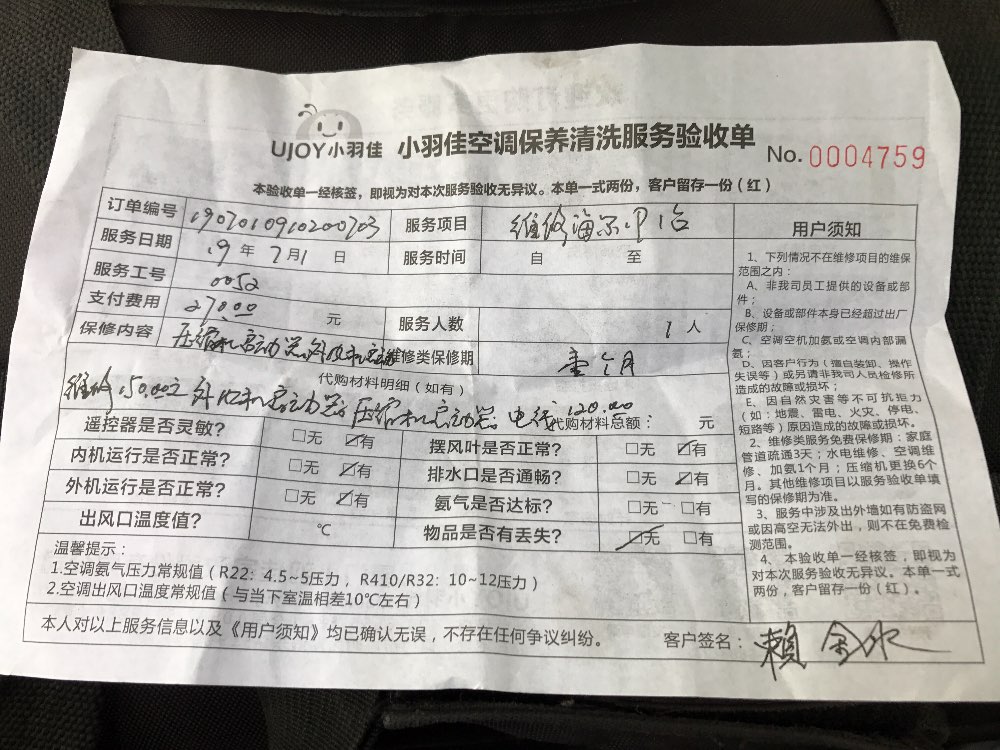 UJOY小羽佳 小羽佳空调保养清洗服务验收单 No. 0004759
本验收单一经核签，即视为对本次服务验收无异议。本单一式两份，客户留存一份（红）
订单编号 1907010910200703 服务项目
服务日期 19年 7月1 日 服务时间 自 至
服务工号 0052
支付费用 270.00 元 服务人数 1 人
保修内容 压缩机启动 维修类保修期 壹个月
代购材料明细（如有）
维修150.00 压缩机启动 电线 120.00 代购材料总额： 元
遥控器是否灵敏？ □无 ☑有 摆风叶是否正常？ □无 ☑有
内机运行是否正常？ □无 ☑有 排水口是否通畅？ □无 ☑有
外机运行是否正常？ □无 ☑有 氨气是否达标？ □无 □有
出风口温度值？ ℃ 物品是否有丢失？ ☑无 □有
温馨提示：
1.空调氨气压力常规值（R22：4.5~5压力，R410/R32：10~12压力）
2.空调出风口温度常规值（与当下室温相差10℃左右）
本人对以上服务信息以及《用户须知》均已确认无误，不存在任何争议纠纷。 客户签名：賴金水
用户须知
1、下列情况不在维修项目的维保
范围之内：
A、非我司员工提供的设备或部
件；
B、设备或部件本身已经超过出厂
保修期；
C、空调空机加氨或空调内部漏
氨；
D、因客户行为（擅自装卸、操作
失误等）或另请非我司人员检修所
造成的故障或损坏；
E、因自然灾害等不可抗拒力
（如：地震、雷电、火灾、停电、
短路等）原因造成的故障或损坏。
2、维修类服务免费保修期：家庭
管道疏通3天；水电维修、空调维
修、加氨1个月；压缩机更换6个
月。其他维修项目以服务验收单填
写的保修期为准。
3、服务中涉及出外墙如有防盗网
或因高空无法外出，则不在免费检
测范围。
4、本验收单一经核签，即视为
对本次服务验收无异议。本单一式
两份，客户留存一份（红）。